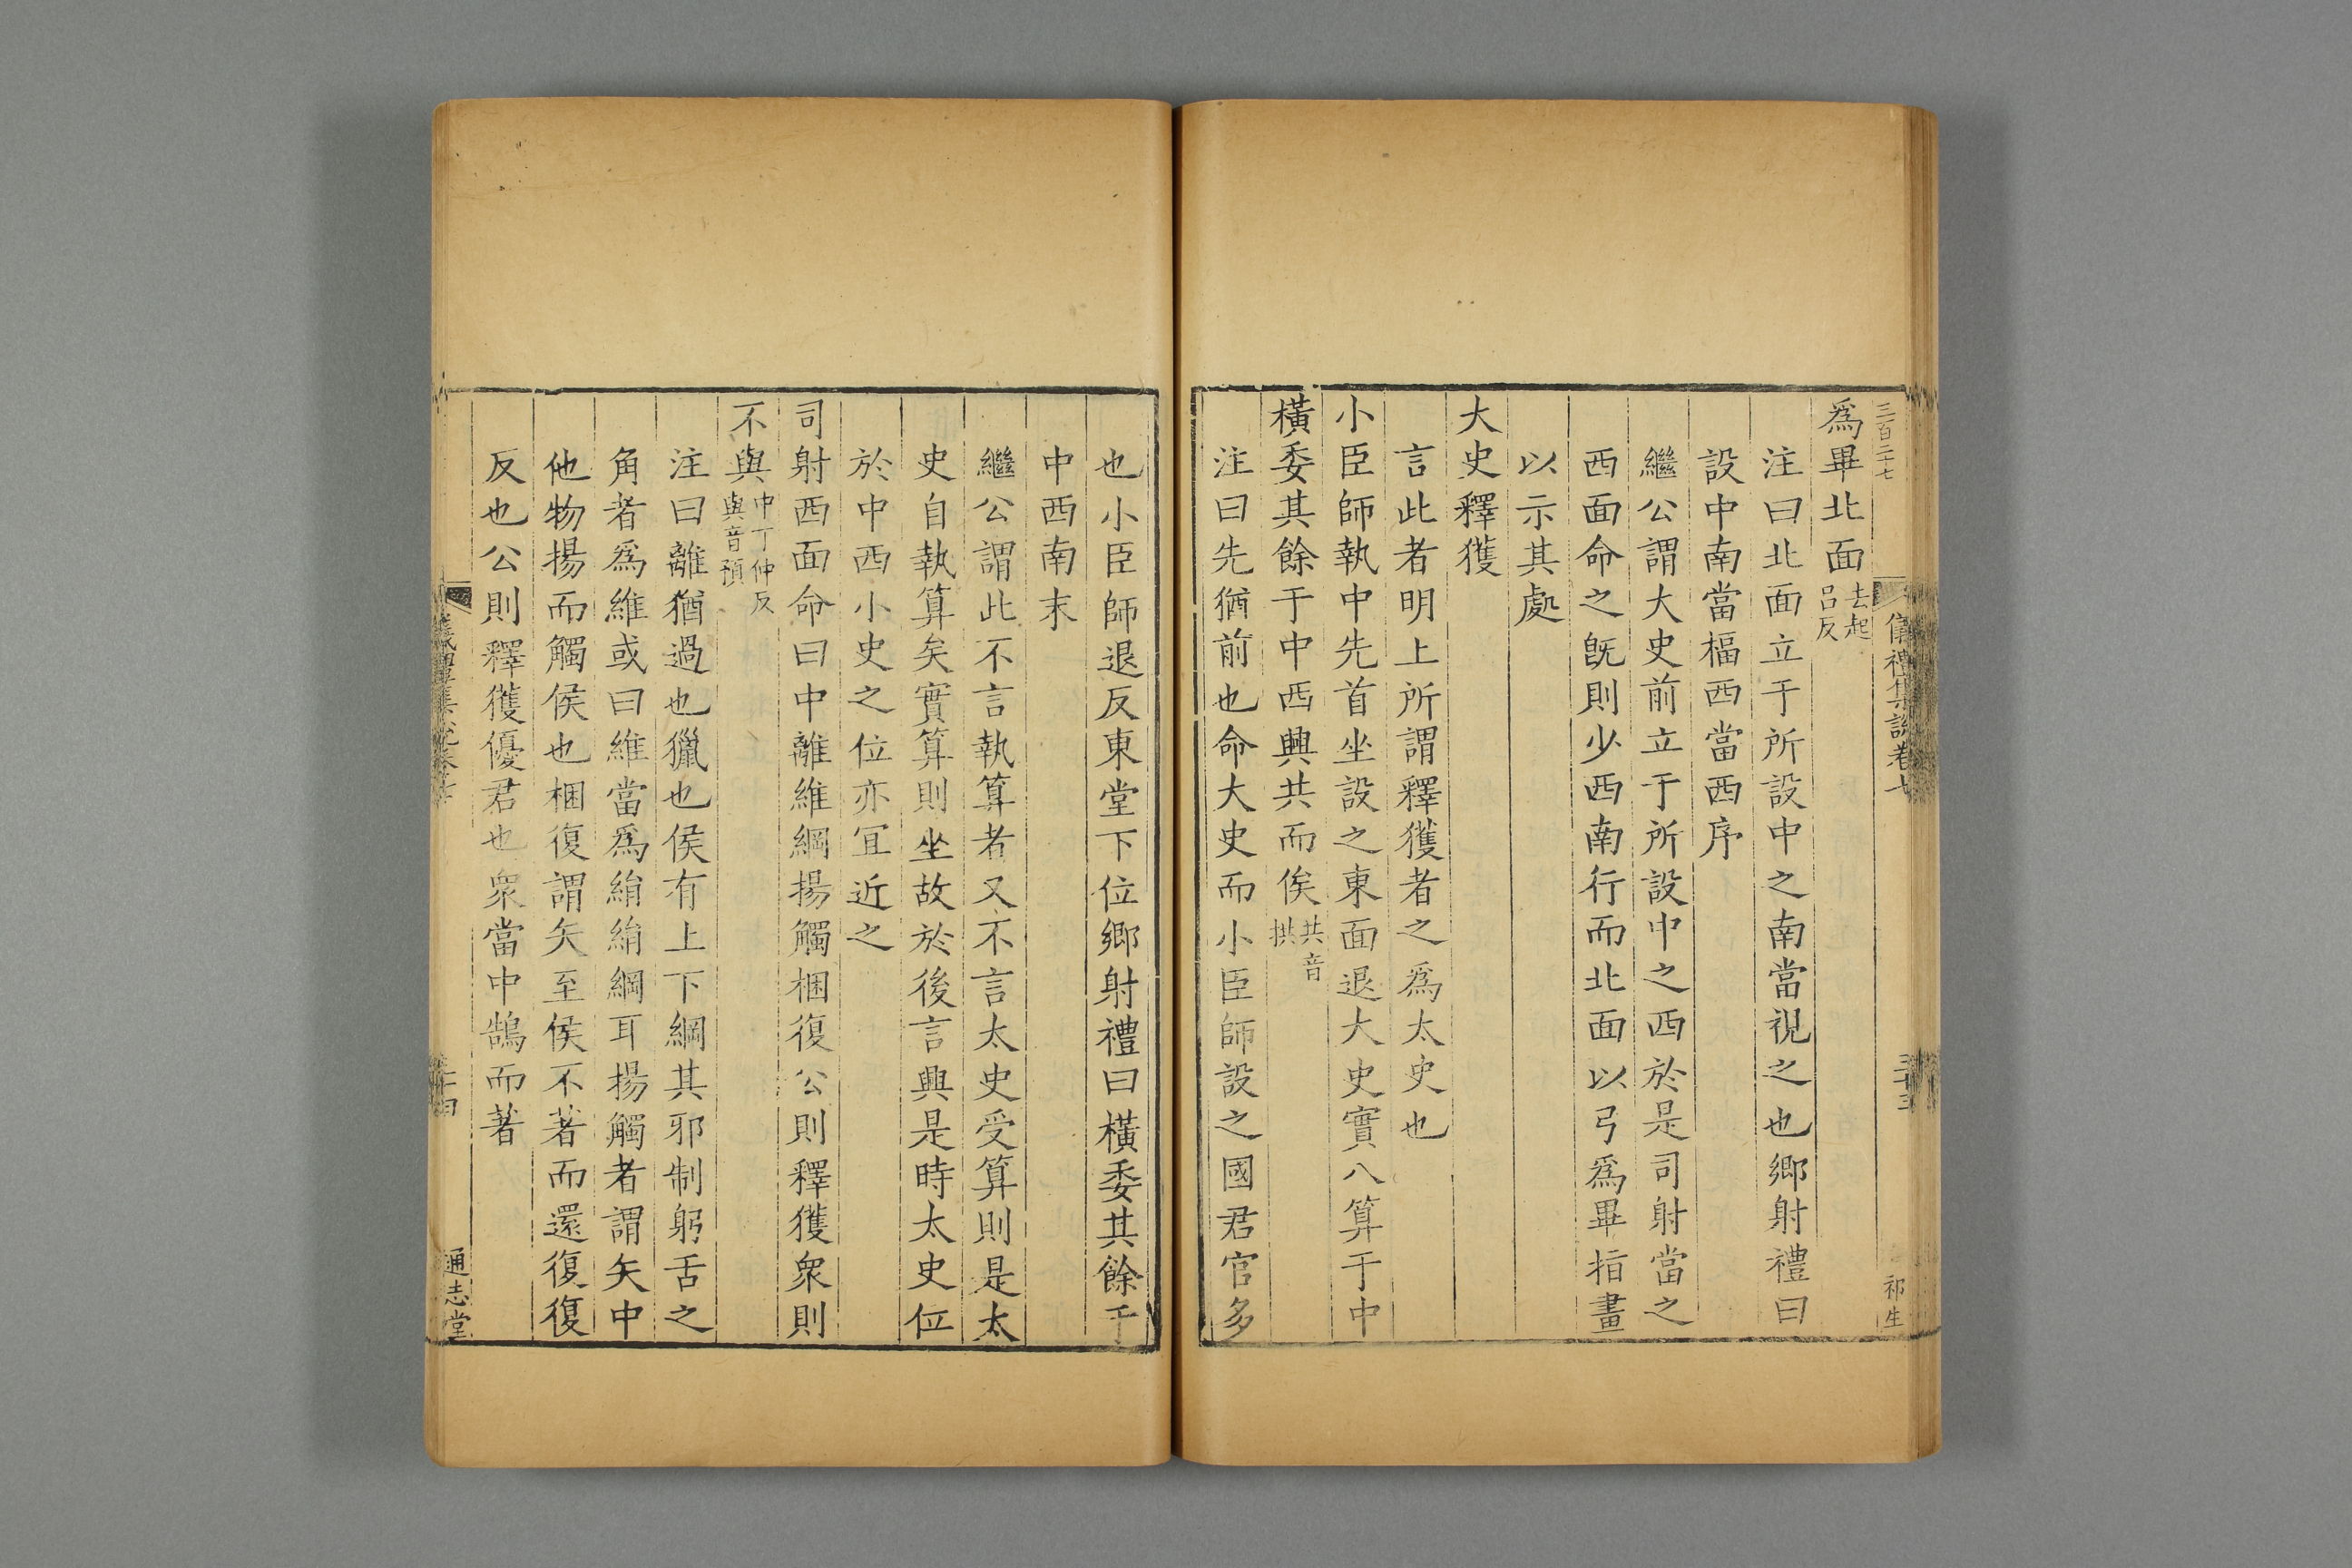 三百二十七
儀禮集說卷七
三十三
祁生
爲畢北面去起呂反
注曰北面立于所設中之南當視之也鄉射禮曰
設中南當楅西當西序
繼公謂大史前立于所設中之西於是司射當之
西面命之旣則少西南行而北面以弓爲畢指畫
以示其處
大史釋獲
言此者明上所謂釋獲者之爲太史也
小臣師執中先首坐設之東面退大史實八算于中
橫委其餘于中西興共而俟共音拱
注曰先猶前也命大史而小臣師設之國君官多
也小臣師退反東堂下位鄉射禮曰橫委其餘于
中西南末
繼公謂此不言執算者又不言太史受算則是太
史自執算矣實算則坐故於後言興是時太史位
於中西小史之位亦宜近之
司射西面命曰中離維綱揚觸梱復公則釋獲衆則
不與中丁仲反與音預
注曰離猶過也獵也侯有上下綱其邪制躬舌之
角者爲維或曰維當爲絹絹綱耳揚觸者謂矢中
他物揚而觸侯也梱復謂矢至侯不著而還復復
反也公則釋獲優君也衆當中鵠而著
通志堂